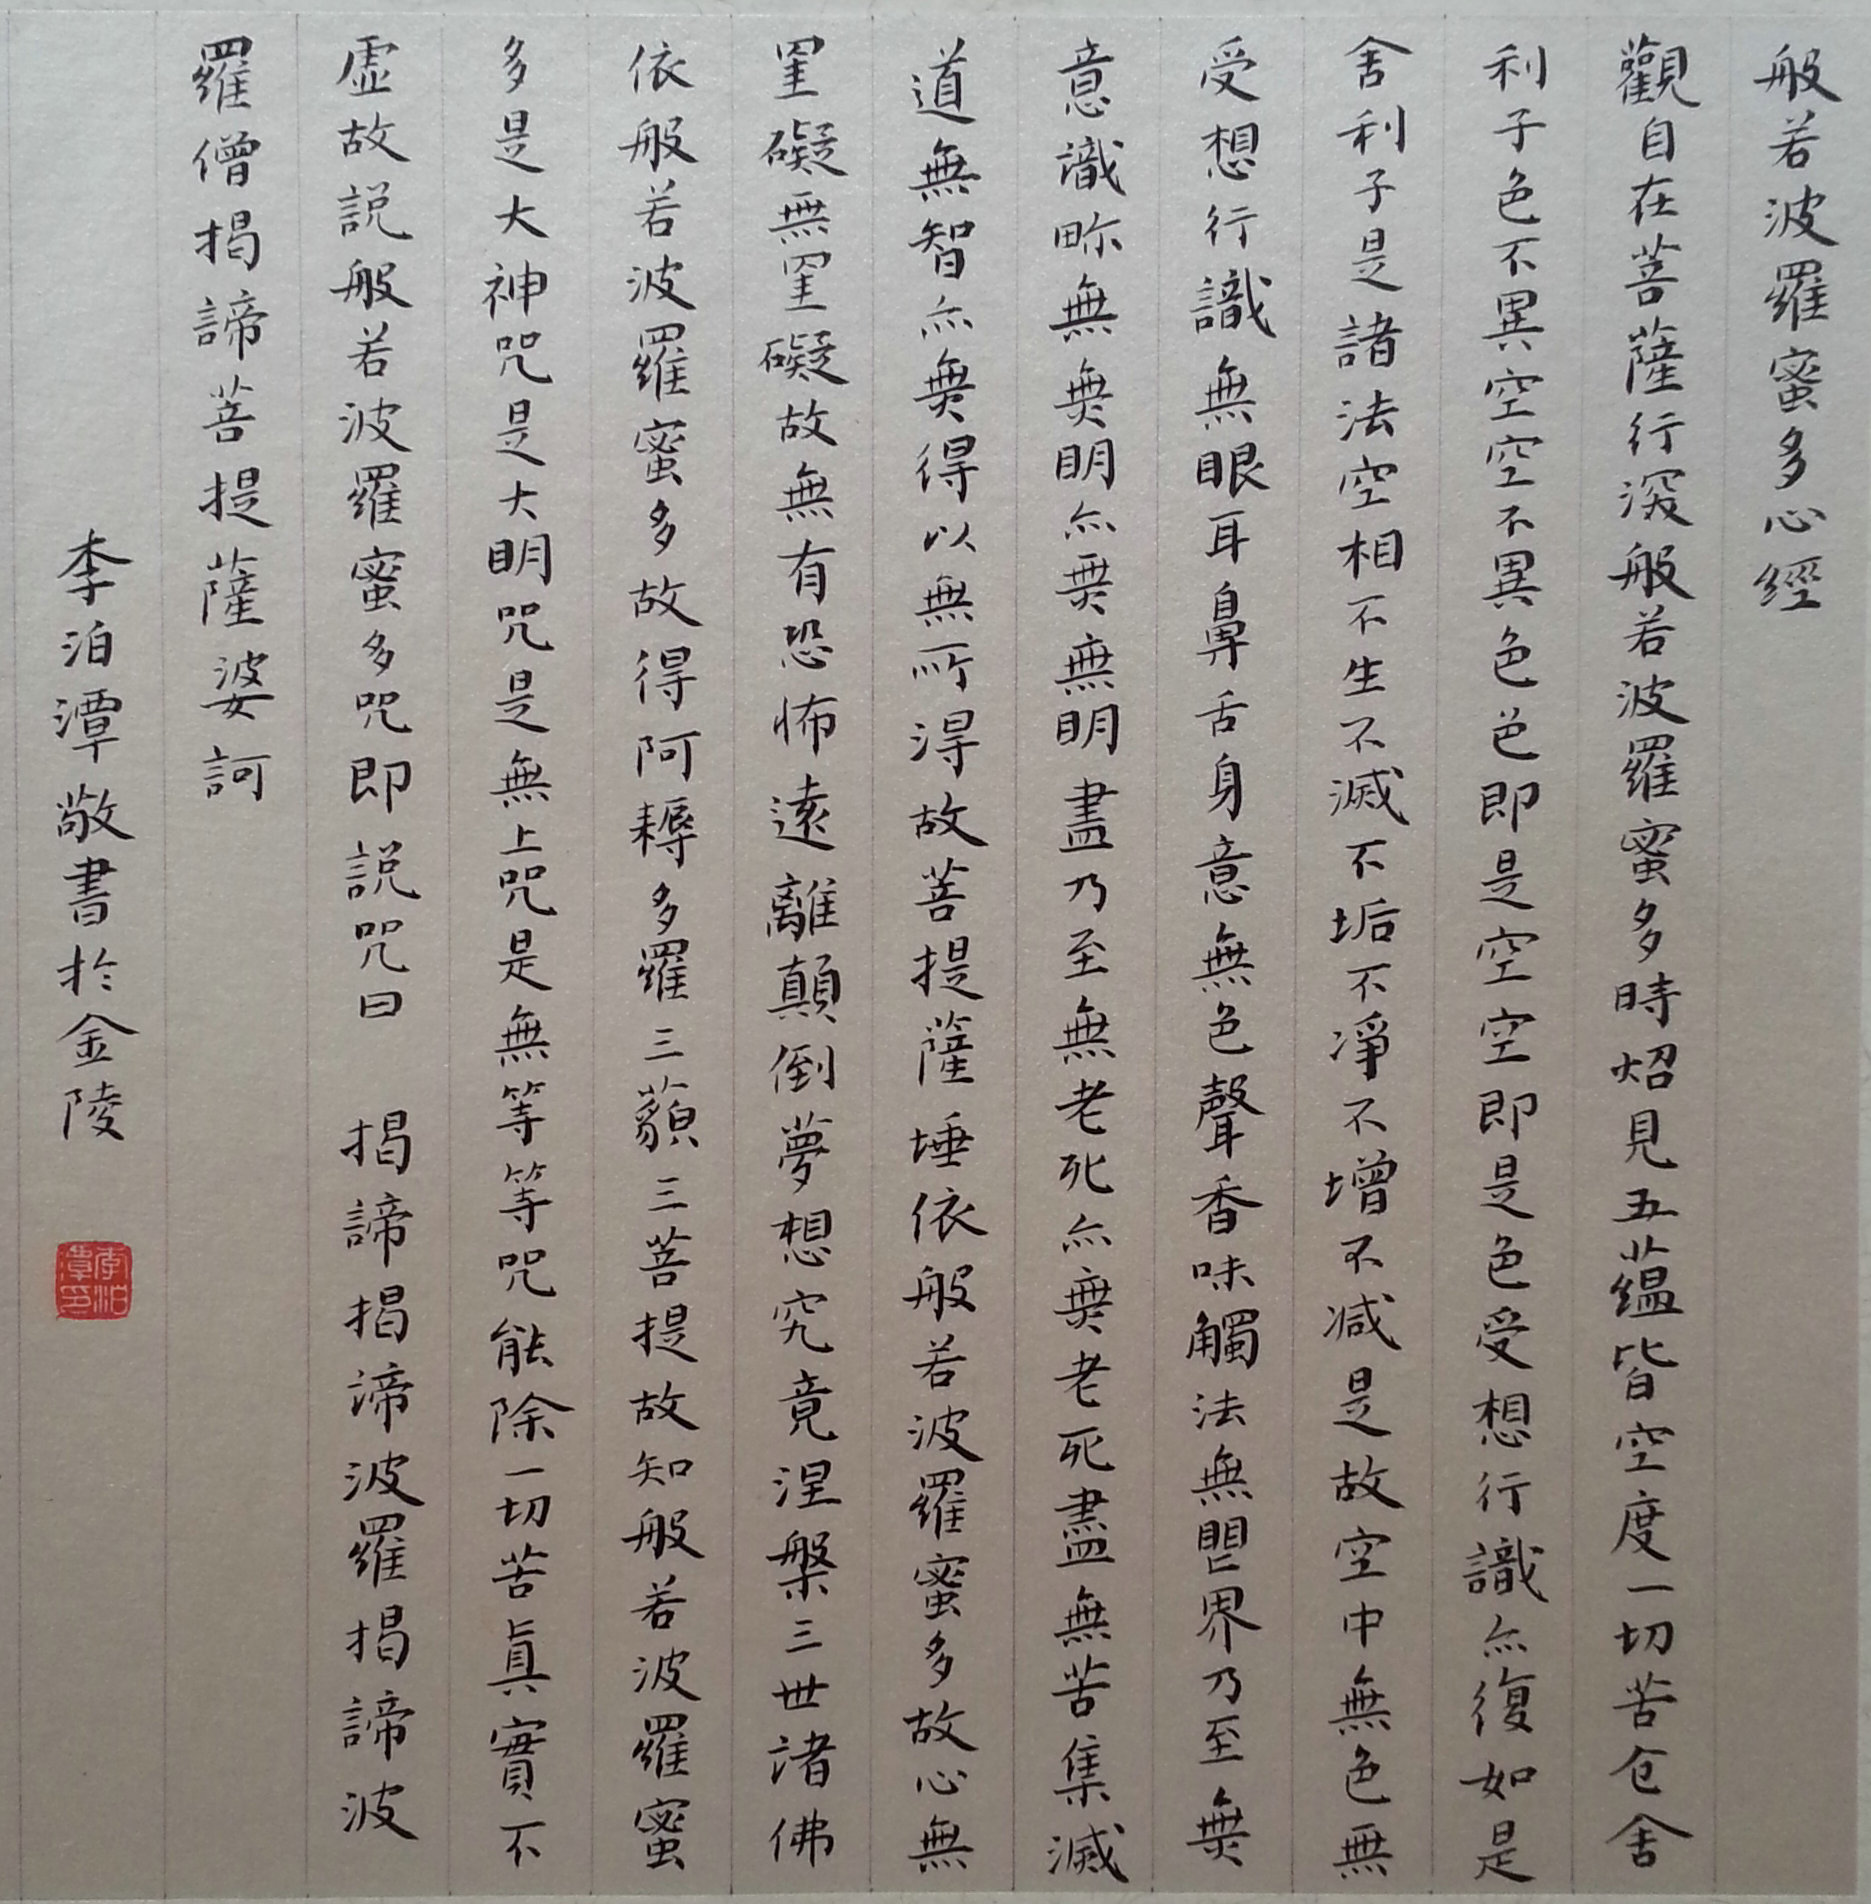 般若波羅蜜多心經
觀自在菩薩行深般若波羅蜜多時炤見五蘊皆空度一切苦仓舍
利子色不異空空不異色色即是空空即是色受想行識亦復如是
舍利子是諸法空相不生不滅不垢不淨不增不減是故空中無色無
受想行識無眼耳鼻舌身意無色聲香味觸法無眼界乃至無
意識畍無無明亦無無明盡乃至無老死亦無老死盡無苦集滅
道無智亦無得以無所得故菩提薩埵依般若波羅蜜多故心無
罣礙無罣礙故無有恐怖遠離顛倒夢想究竟涅槃三世諸佛
依般若波羅蜜多故得阿耨多羅三藐三菩提故知般若波羅蜜
多是大神咒是大明咒是無上咒是無等等咒能除一切苦真實不
虛故說般若波羅蜜多咒即說咒曰 揭諦揭諦波羅揭諦波
羅僧揭諦菩提薩婆訶
李泊潭敬書於金陵
李泊潭印